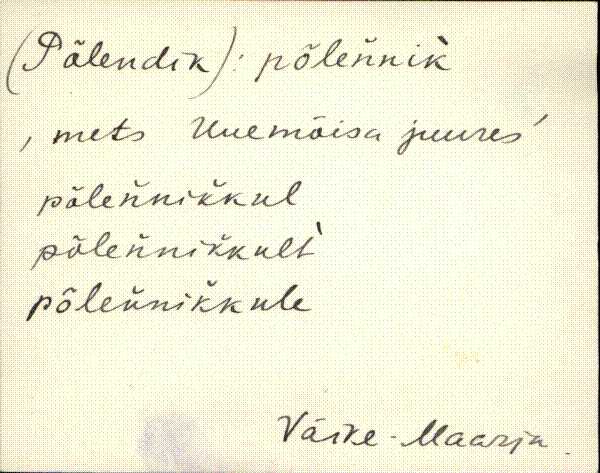 (Põlendik): põleňnik̀
, mets Uuemõisa juures'
põleňnik̆kul
põleňnik̆kul̀t
põleňnik̆kule
Väike-Maarja.